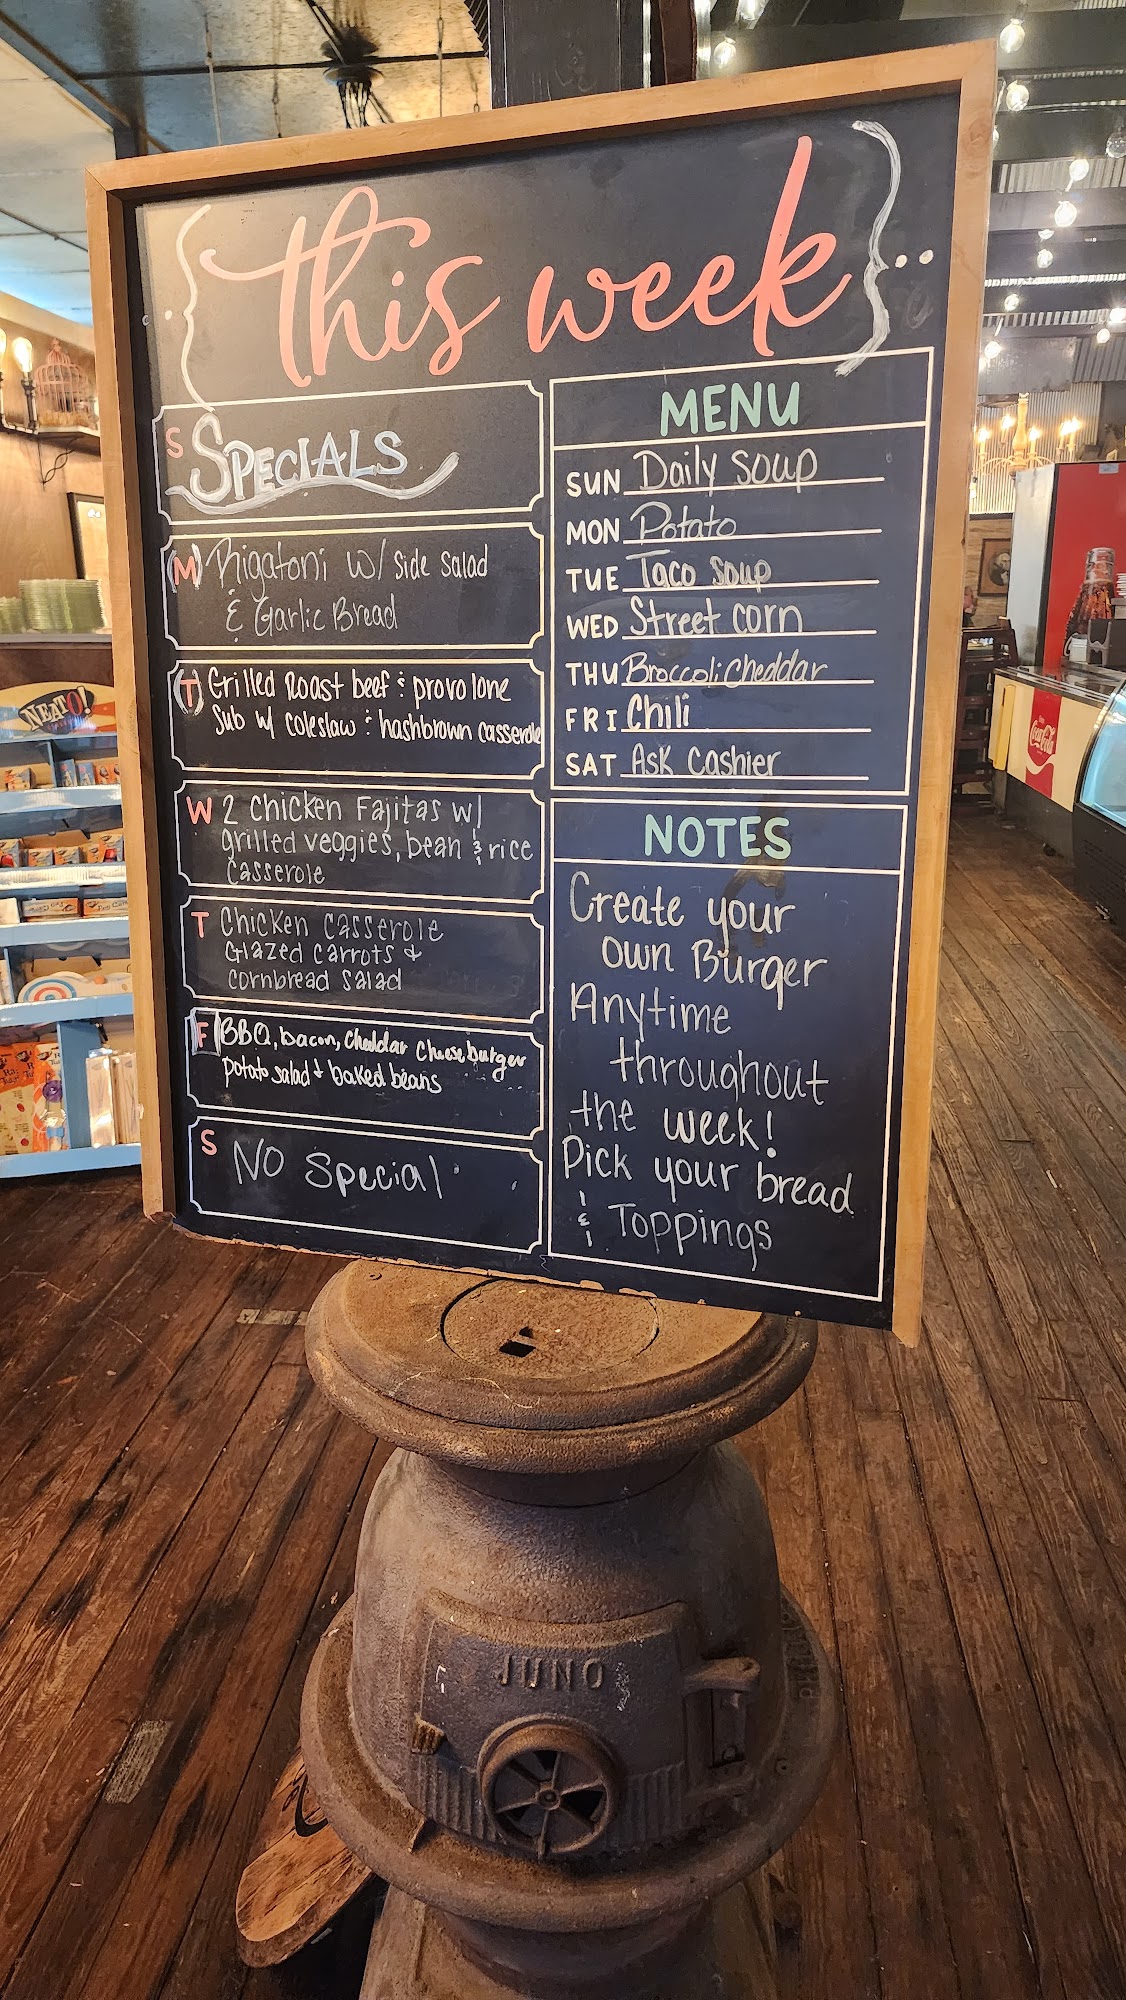 this week
S SPECIALS
M Rigatoni w/ side salad
& Garlic Bread
T Grilled Roast beef & provolone
Sub w/ coleslaw & hashbrown casserole
W 2 chicken Fajitas w/
grilled veggies, bean & rice
casserole
T Chicken Casserole
Glazed carrots &
cornbread salad
F BBQ, bacon, cheddar cheeseburger
potato salad + baked beans
S NO Special
MENU
SUN Daily soup
MON Potato
TUE Taco soup
WED Street corn
THU Broccoli cheddar
FRI Chili
SAT Ask cashier
NOTES
Create your
own Burger
Anytime
throughout
the week!
Pick your bread
& Toppings
NEATO!
Coca-Cola
JUNO